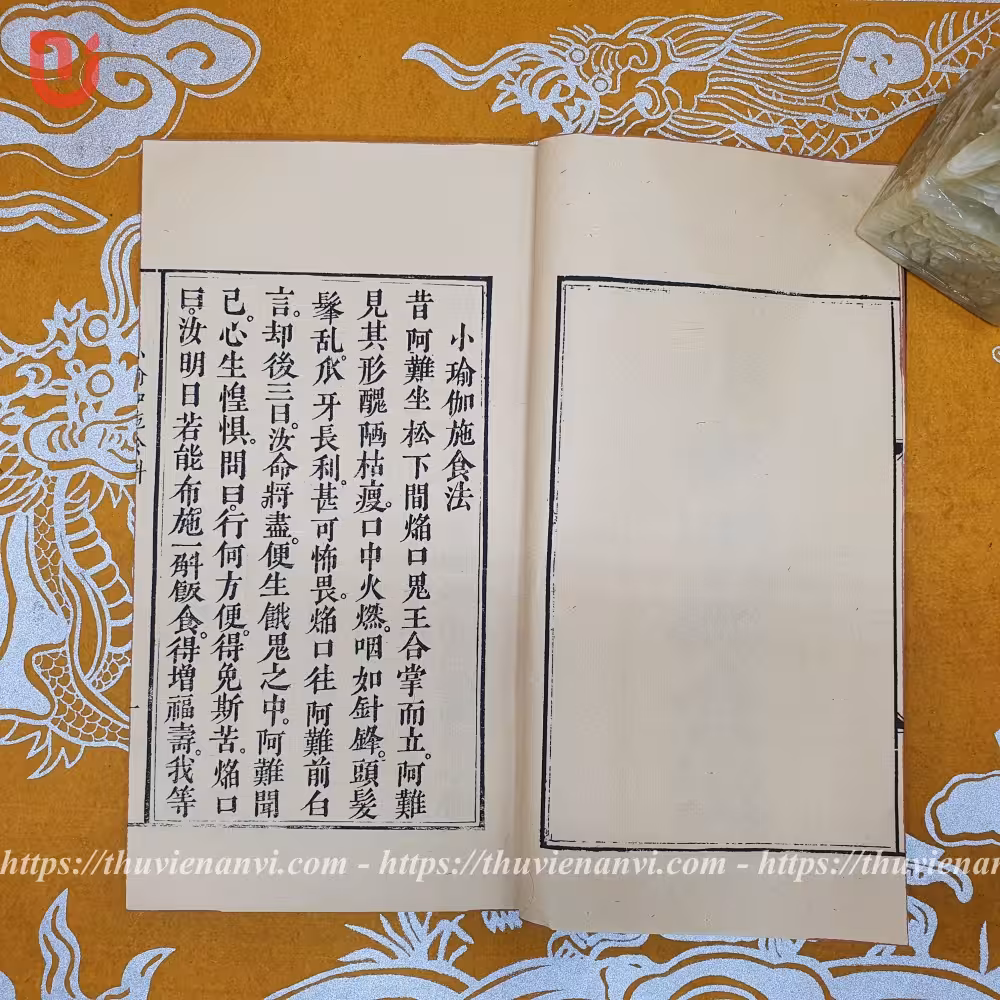 小瑜伽施食法
昔阿難坐松下間焔口鬼王合掌而立。阿難
見其形醜陋枯瘦。口中火燃。咽如針鋒。頭髮
髼乱。爪牙長利。甚可怖畏。焔口往阿難前白
言。却後三日。汝命將盡。便生餓鬼之中。阿難聞
已。心生惶惧。問曰。行何方便。得免斯苦。焔口
曰。汝明日若能布施一斛飯食。得增福壽。我等
https://thuvienanvi.com - https://thuvienanvi.com - https://thuvienan